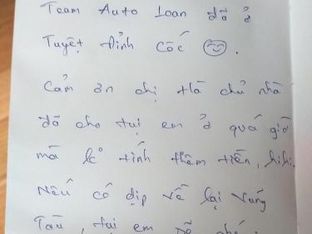 Team Auto Loan đã ở
Tuyệt Đỉnh Cốc 😊.
Cảm ơn chị Hà chủ nhà
đã cho tụi em ở quá giờ
mà k tính thêm tiền, hihi.
Nếu có dịp về lại Vũng
Tàu, tụi em sẽ ghé